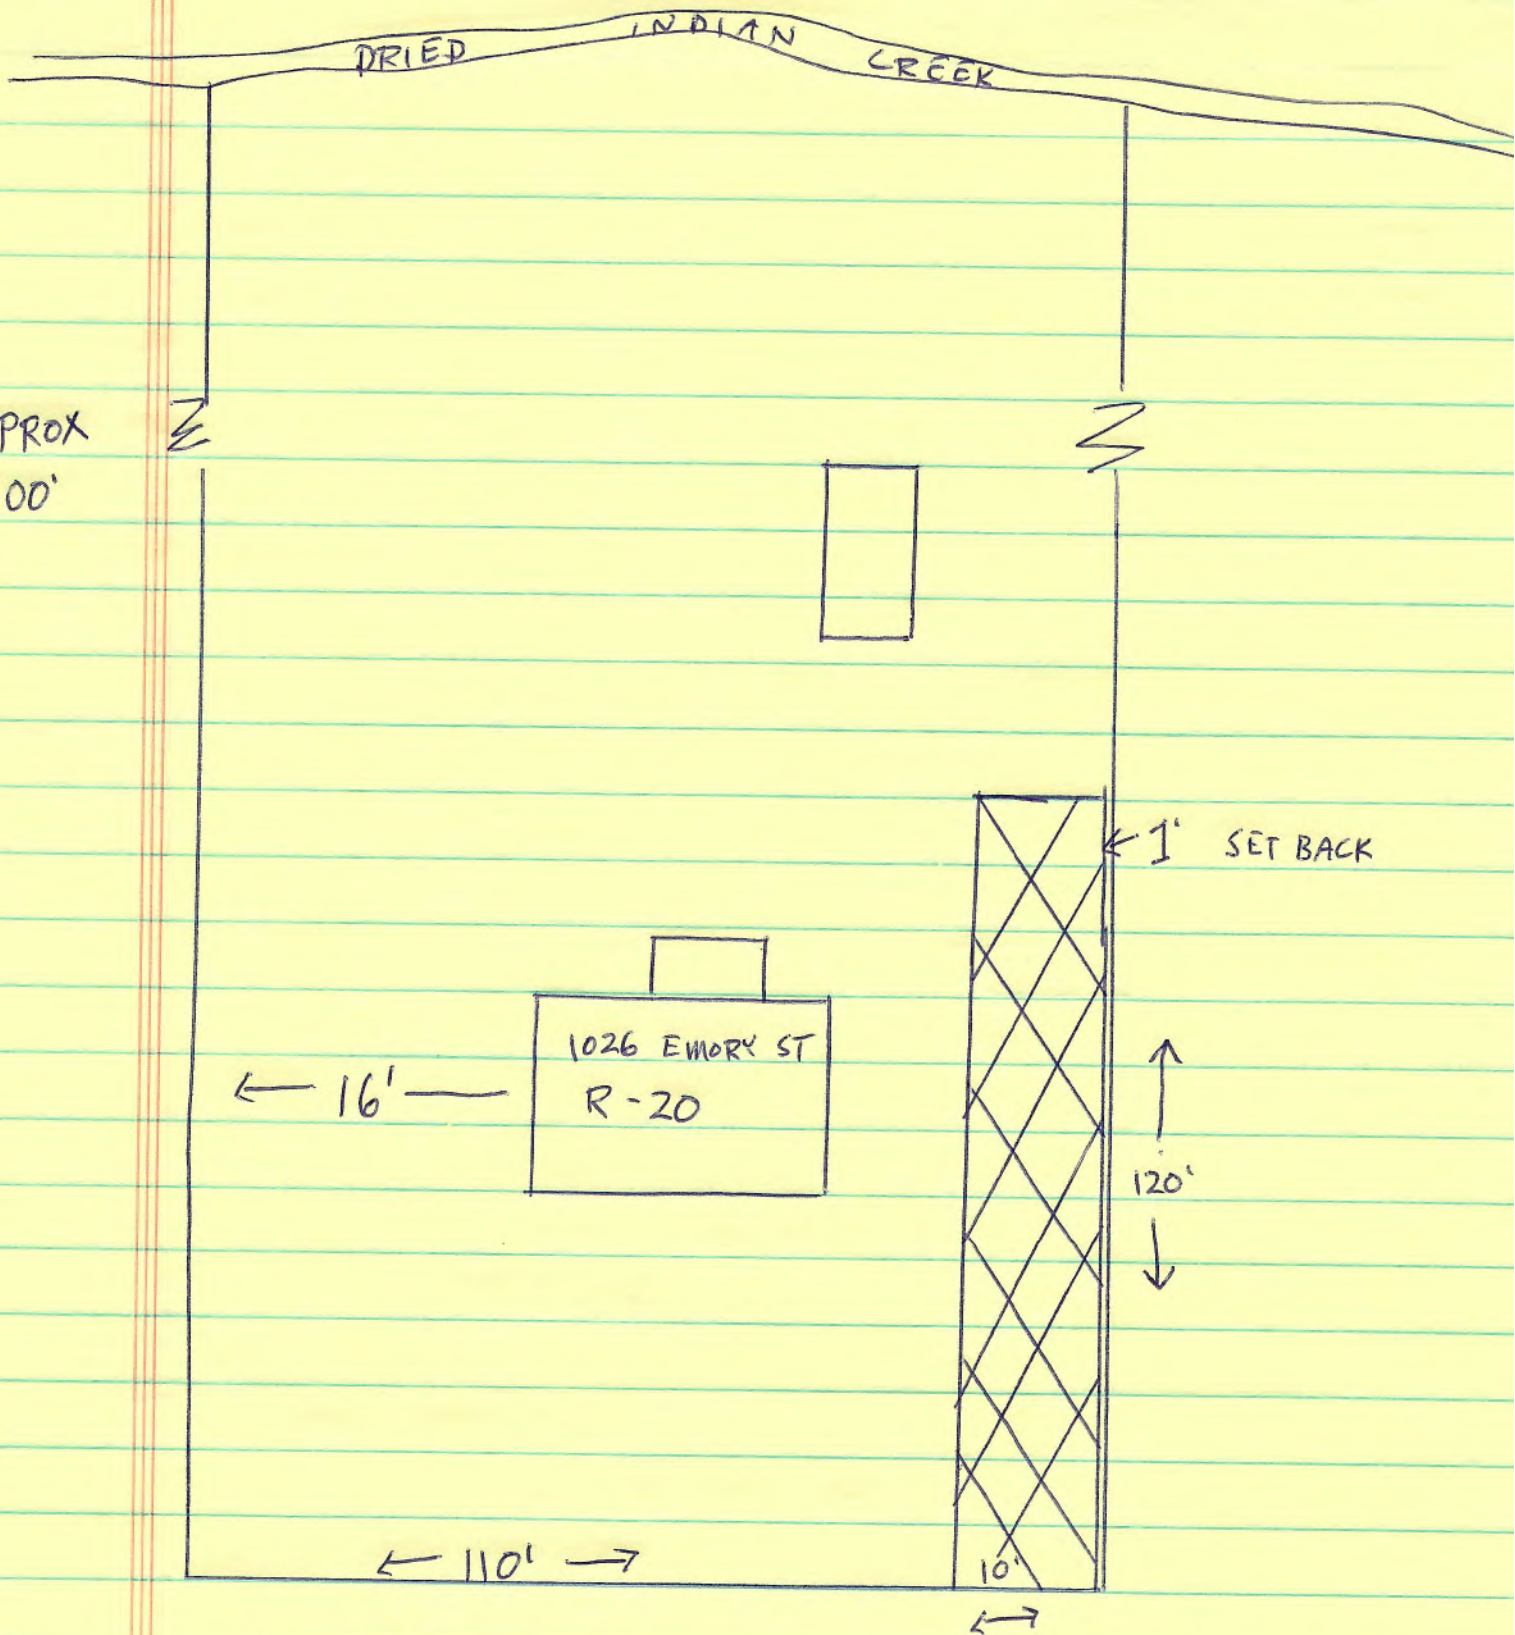 DRIED INDIAN CREEK
PROX
00'
1' SET BACK
1026 EMORY ST
R-20
16'
120'
110'
10'